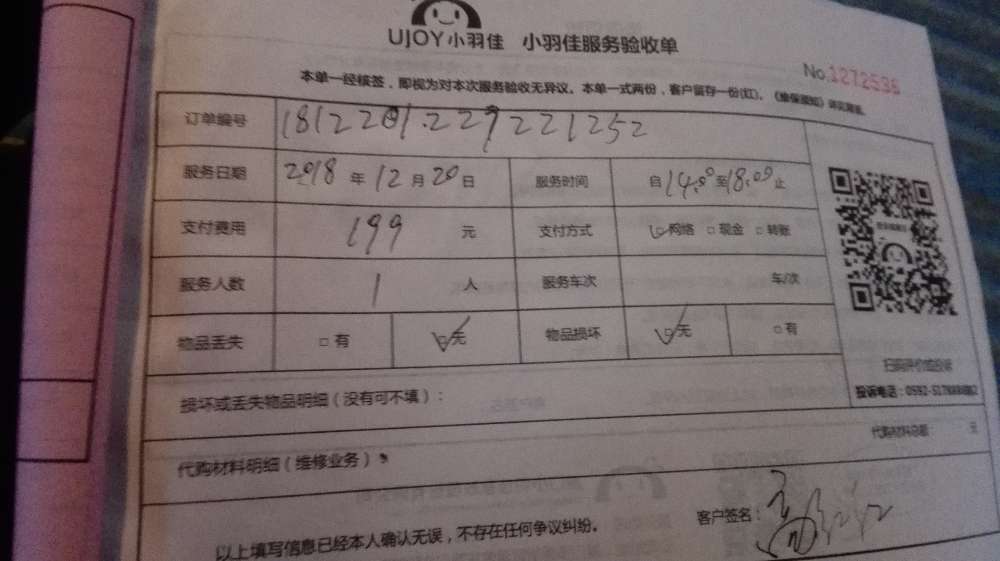 UJOY小羽佳 小羽佳服务验收单
No.1272536
本单一经核签，即视为对本次服务验收无异议。本单一式两份，客户留存一份(红)。《维保须知》详见背面。
订单编号 1812201229221252
服务日期 2018 年 12 月 20 日 服务时间 自 14:00 至 18:00 止
支付费用 199 元 支付方式 ☑网络 □现金 □转账
服务人数 1 人 服务车次 车/次
物品丢失 □有 ☑无 物品损坏 ☑无 □有
扫码评价或投诉
投诉电话：
损坏或丢失物品明细（没有可不填）：
代购材料总额： 元
代购材料明细（维修业务）：
客户签名：
以上填写信息已经本人确认无误，不存在任何争议纠纷。